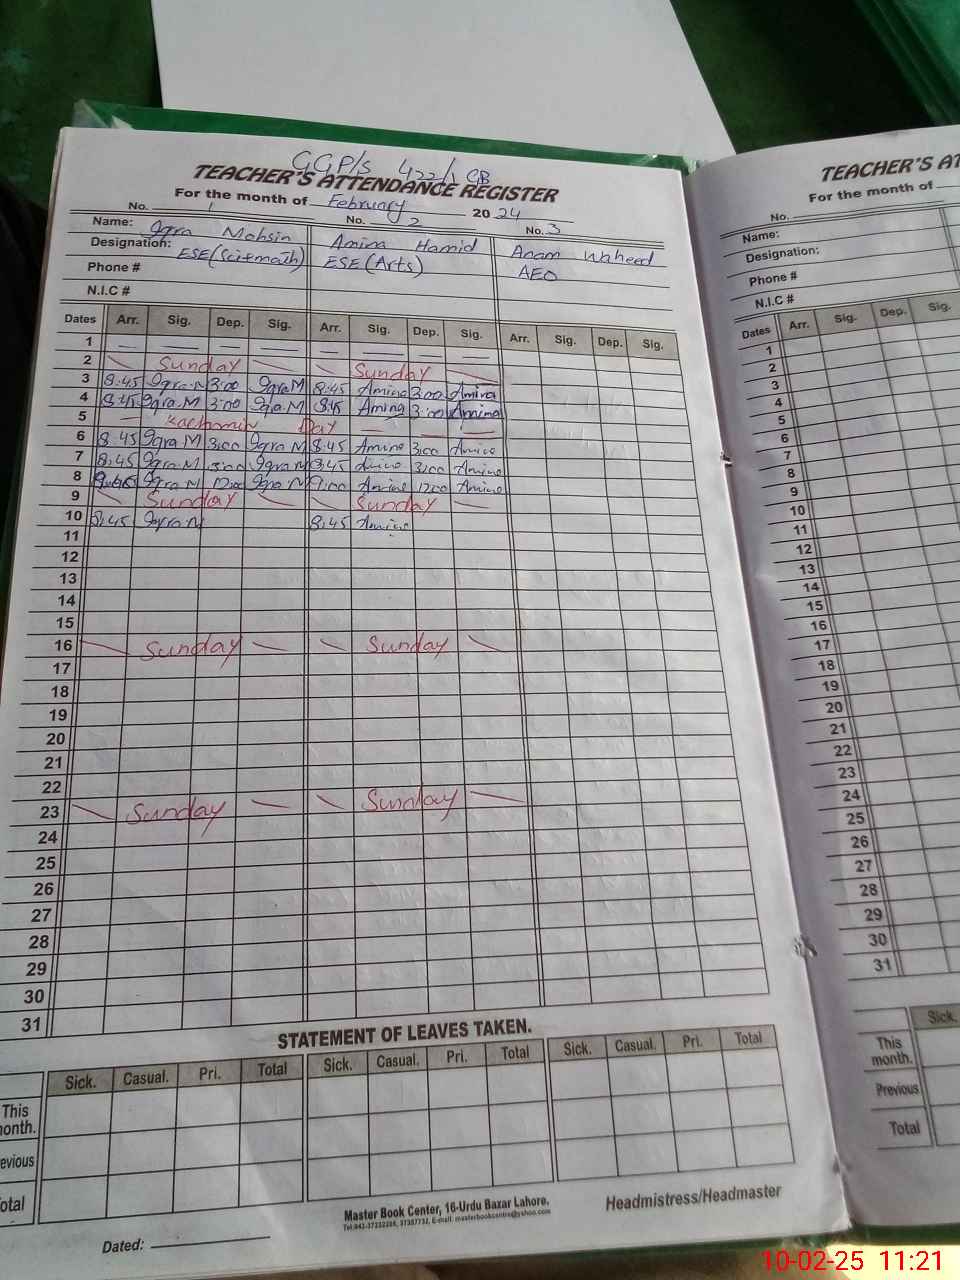 GGP/S 422/1 GB
TEACHER'S ATTENDANCE REGISTER
For the month of February 2024
No. 1 No. 2 No. 3
Name: Iqra Mohsin Amina Hamid Anam Waheed
Designation: ESE(Sci+math) ESE(Arts) AEO
Phone #
N.I.C #
Dates Arr. Sig. Dep. Sig. Arr. Sig. Dep. Sig. Arr. Sig. Dep. Sig.
1 — — — — — — — —
2 Sunday — Sunday
3 8:45 Iqra M 3:00 Iqra M 8:45 Amina 3:00 Amina
4 8:45 Iqra M 3:00 Iqra M 8:45 Amina 3:00 Amina
5 Kashmir Day — — —
6 8:45 Iqra M 3:00 Iqra M 8:45 Amina 3:00 Amina
7 8:45 Iqra M 3:00 Iqra M 8:45 Amina 3:00 Amina
8 Iqra M 12:00 Iqra M 9:00 Amina 12:00 Amina
9 Sunday — Sunday —
10 8:45 Iqra M 8:45 Amina
11
12
13
14
15
16 — Sunday — Sunday
17
18
19
20
21
22
23 Sunday — Sunday —
24
25
26
27
28
29
30
31
STATEMENT OF LEAVES TAKEN.
Sick. Casual. Pri. Total Sick. Casual. Pri. Total Sick. Casual. Pri. Total
This
onth.
evious
otal
Master Book Center, 16-Urdu Bazar Lahore.
Headmistress/Headmaster
Dated:
TEACHER'S AT
For the month of
No.
Name:
Designation:
Phone #
N.I.C #
Dates Arr. Sig. Dep. Sig.
1
2
3
4
5
6
7
8
9
10
11
12
13
14
15
16
17
18
19
20
21
22
23
24
25
26
27
28
29
30
31
Sick.
This
month.
Previous
Total
10-02-25 11:21